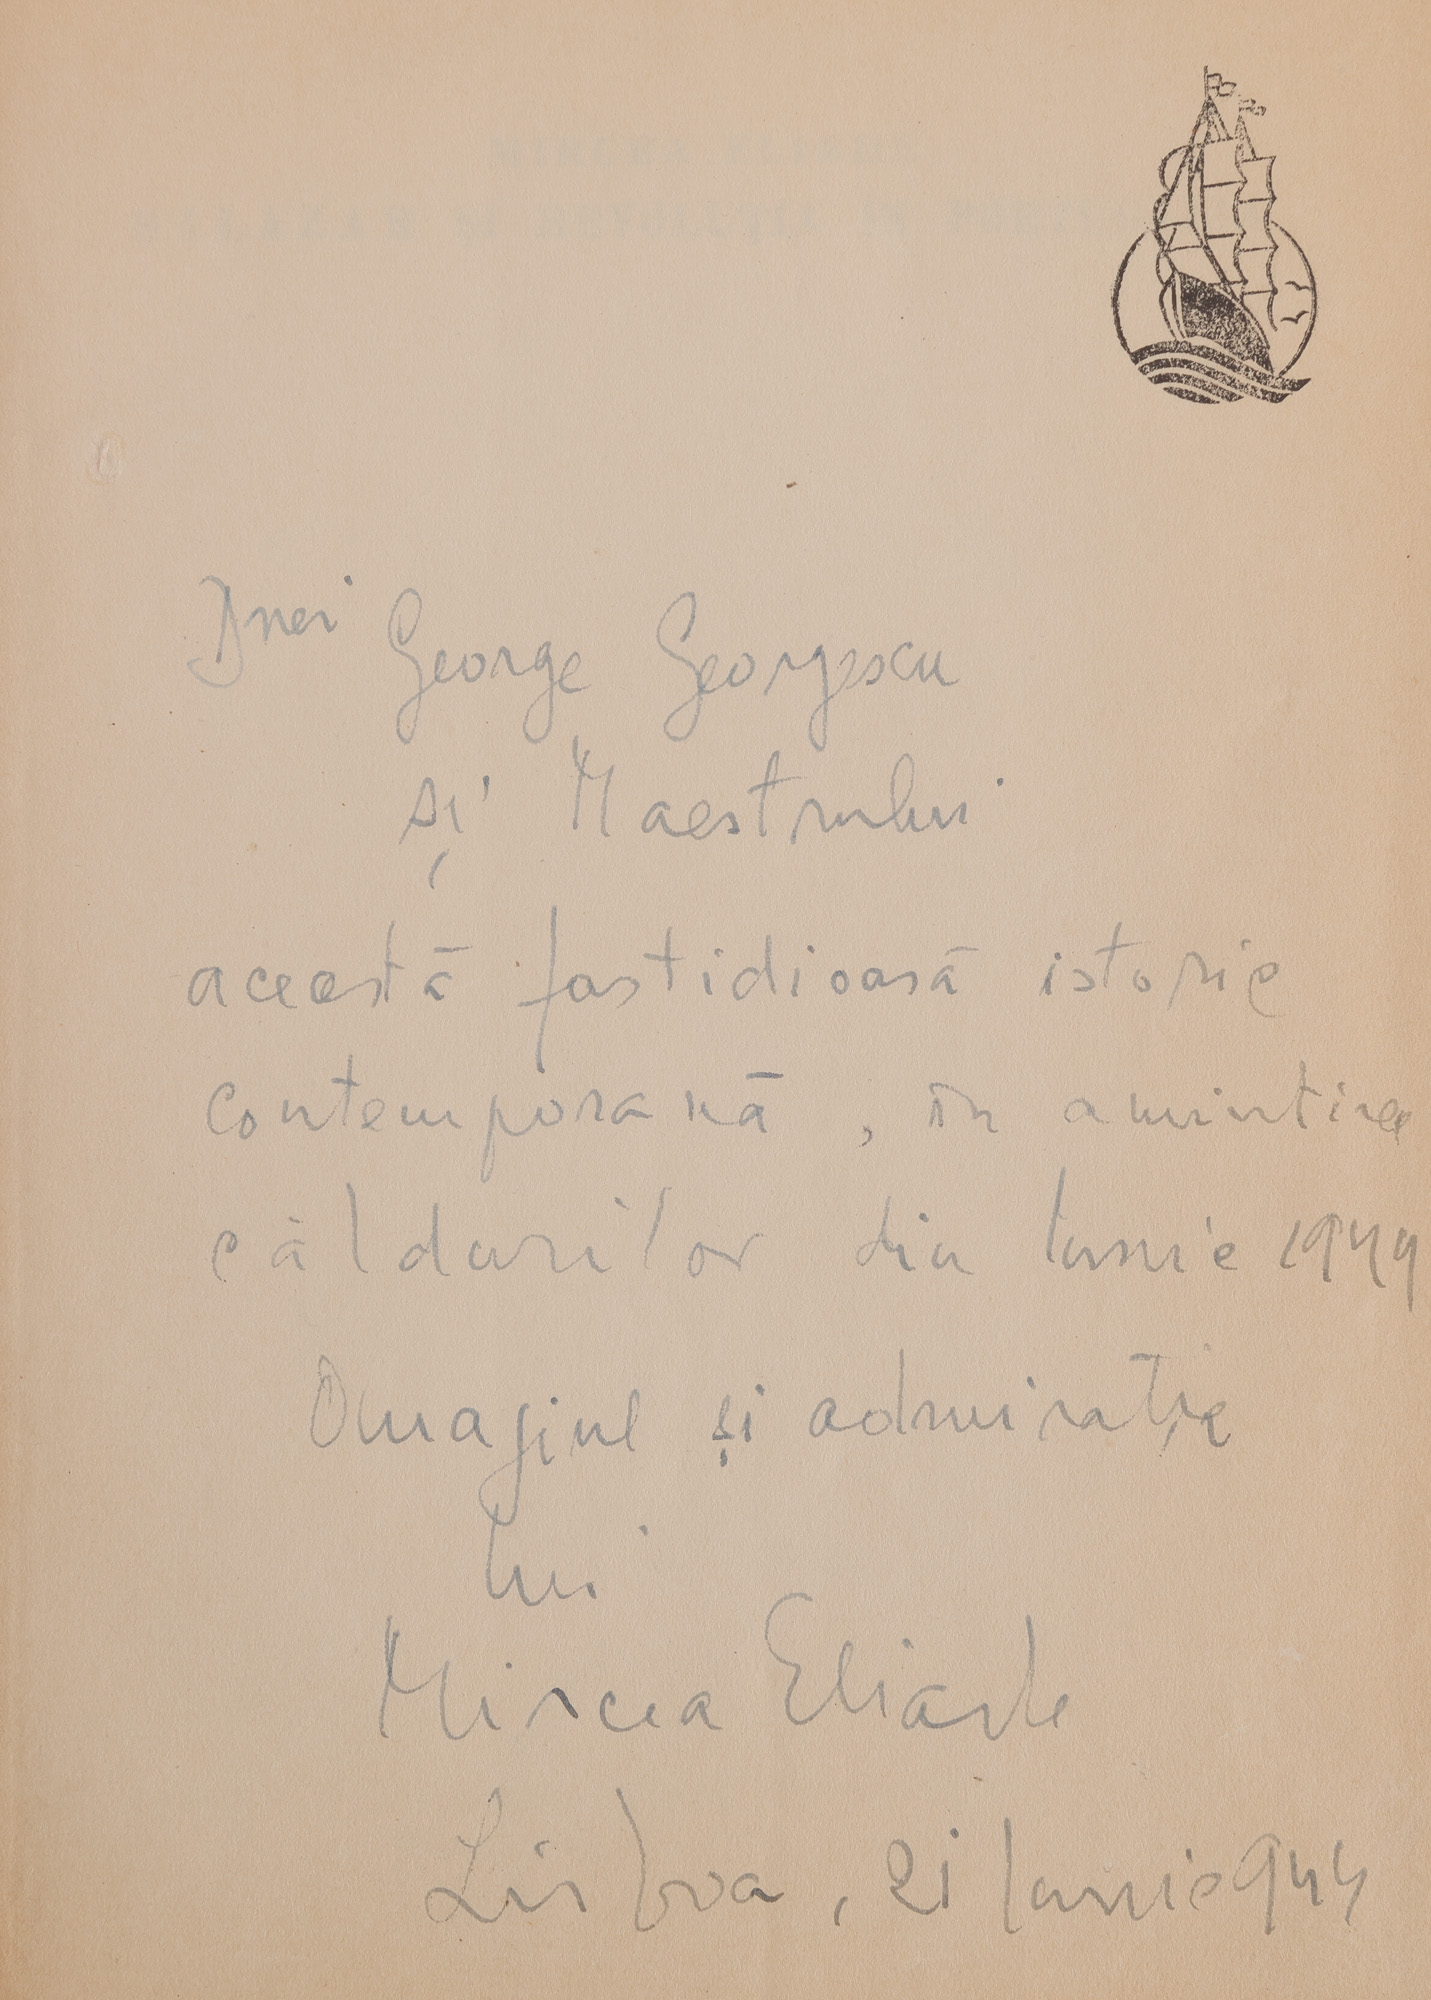 Dnei George Georgescu
și Maestrului
această fastidioasă istorie
contemporană, în amintirea
căldurilor din Iunie 1944
Omagiul și admirație
lui
Mircea Eliade
Lisboa, 21 Iunie 944